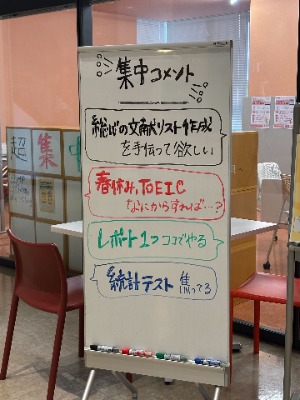 集中コメント
総ばの文献リスト作成
を手伝って欲しい
春休み、TOEIC
なにからすれば…?
レポート1つ ココでやる
統計テスト 焦ってる
超集中